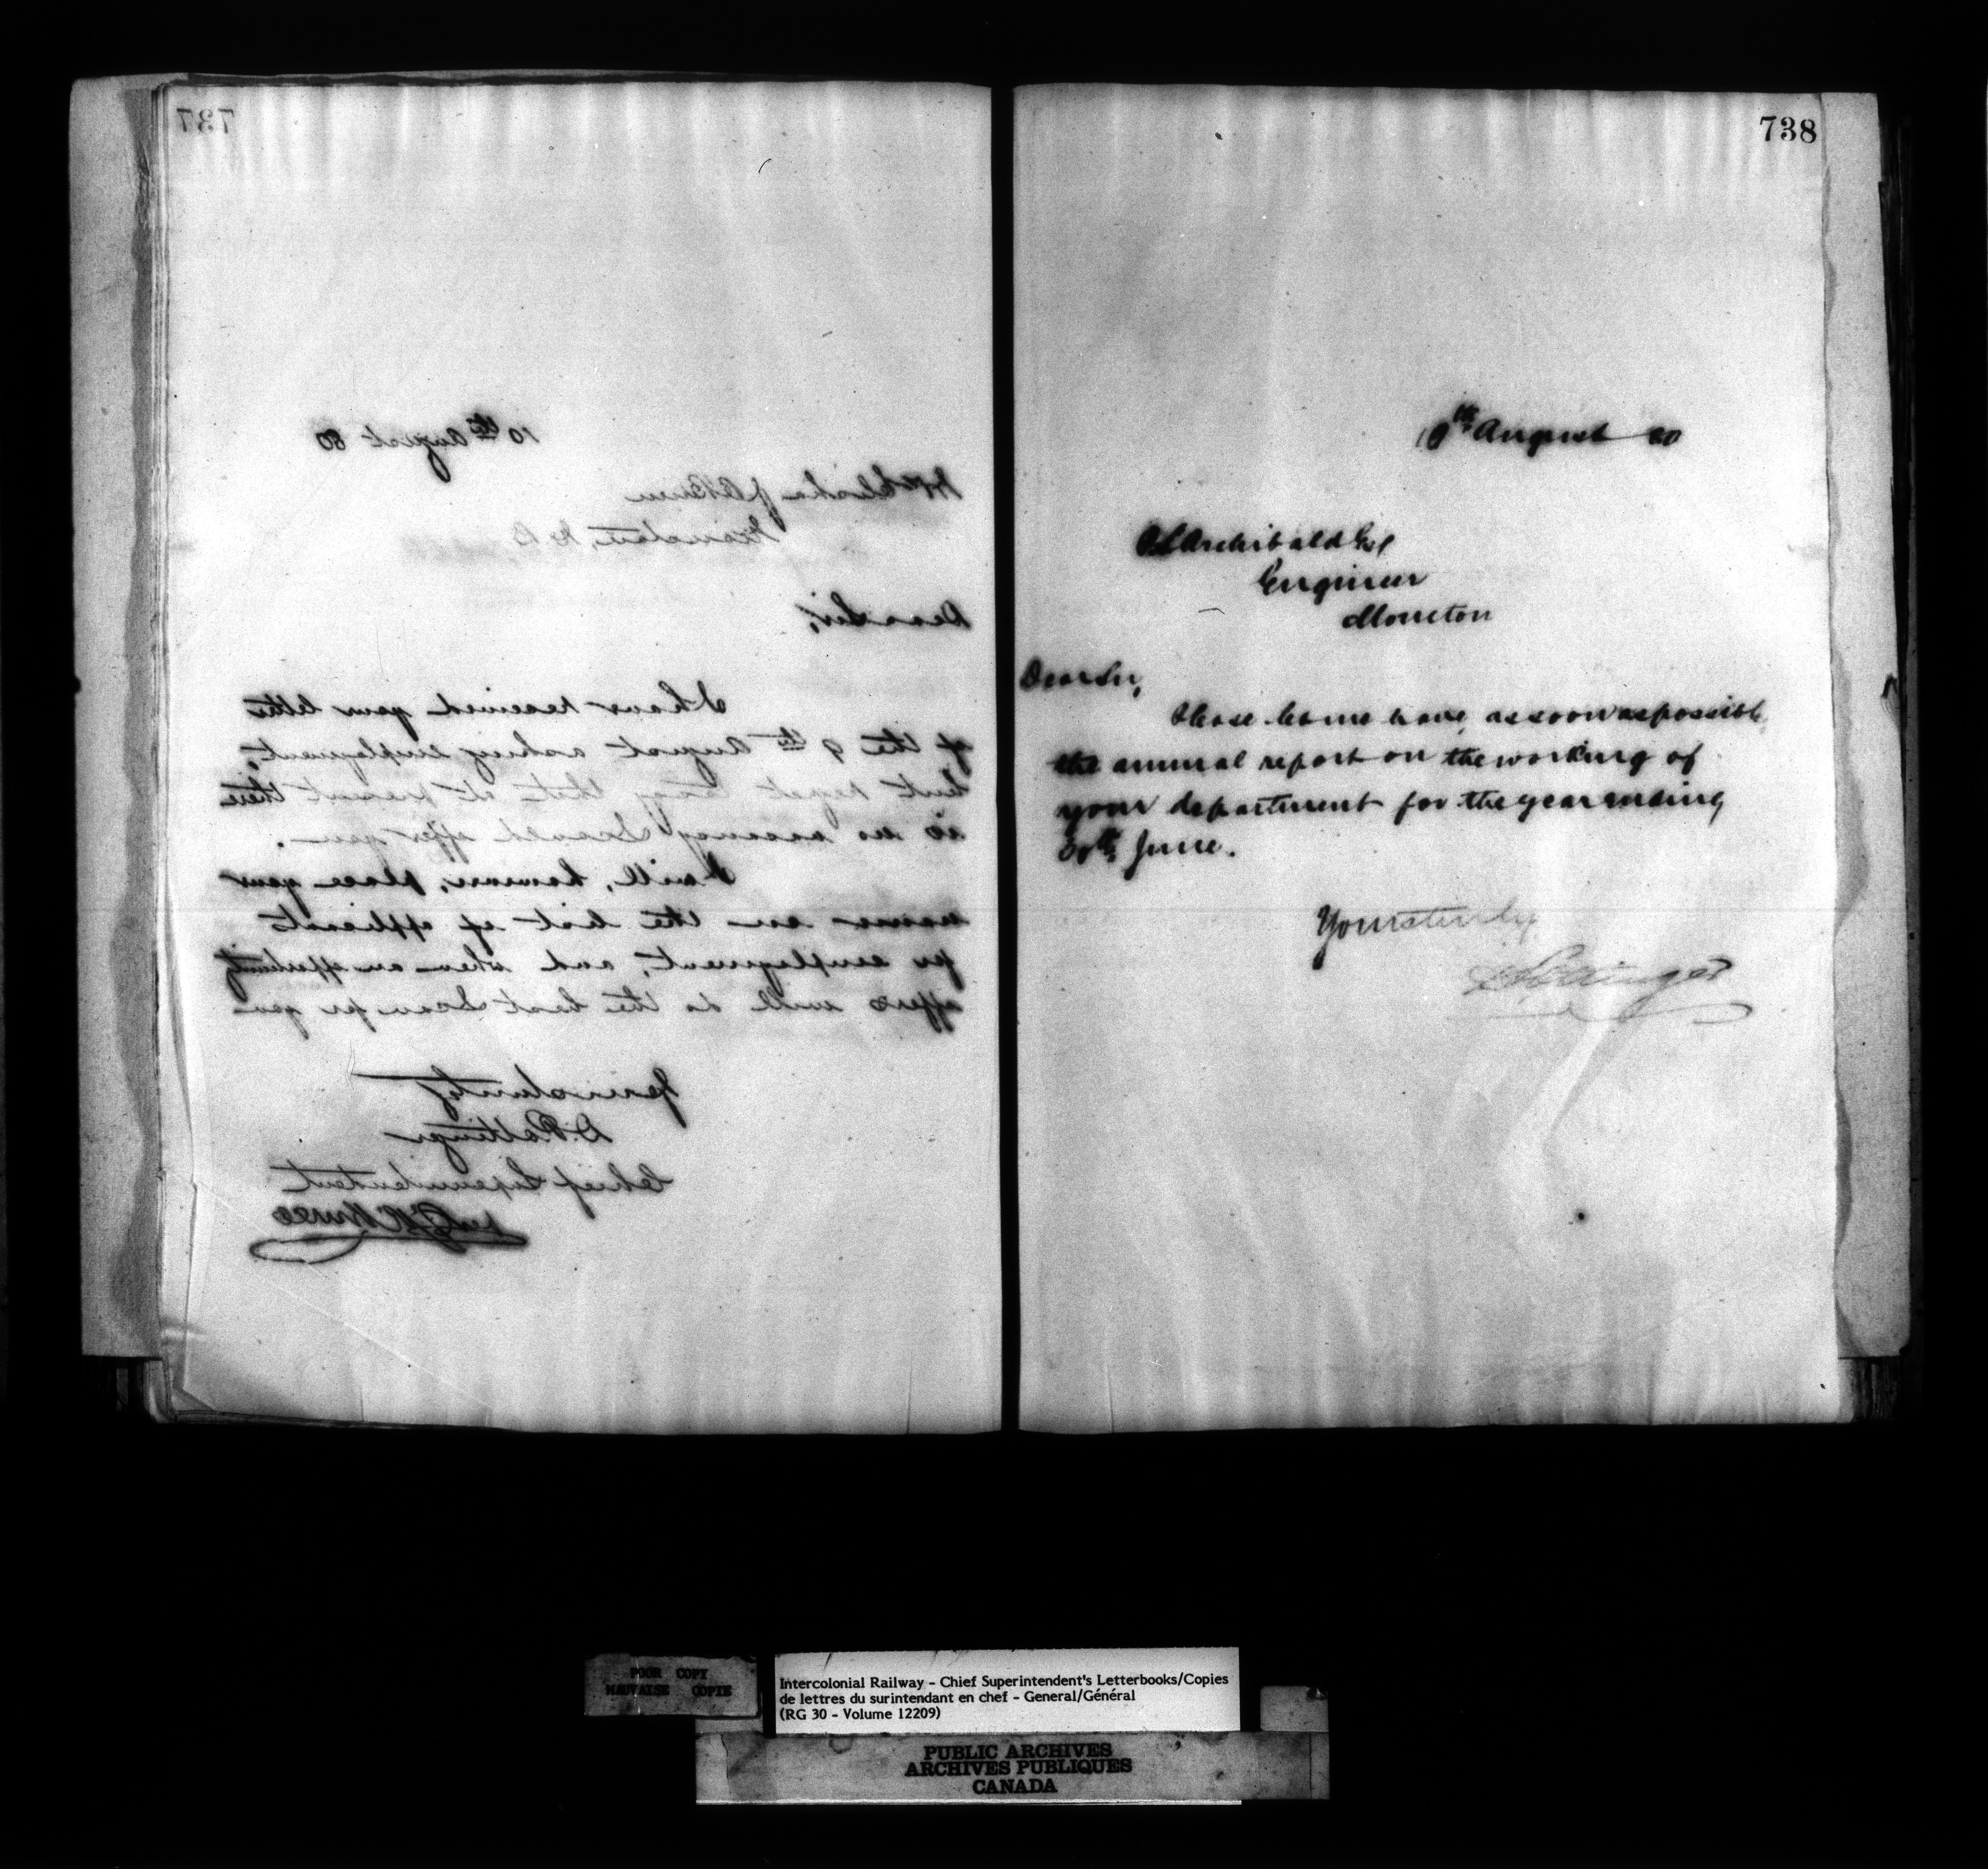 737
10th August 80
Dear Sir,
I have received your letter
of the 9th August asking employment,
but regret to say that at present there
is no vacancy I could offer you.
I will, however, place your
name on the list of applicants
for employment, and when an opportunity
offers will do the best I can for you
Yours truly
D. Pottinger
Chief Superintendent
738
10th August 80
P S Archibald Esq
Engineer
Moncton
Dear Sir,
Please let me have, as soon as possible,
the annual report on the working of
your department for the year ending
30th June.
Yours truly
D Pottinger
POOR COPY
MAUVAISE COPIE
Intercolonial Railway - Chief Superintendent's Letterbooks/Copies
de lettres du surintendant en chef - General/Général
(RG 30 - Volume 12209)
PUBLIC ARCHIVES
ARCHIVES PUBLIQUES
CANADA